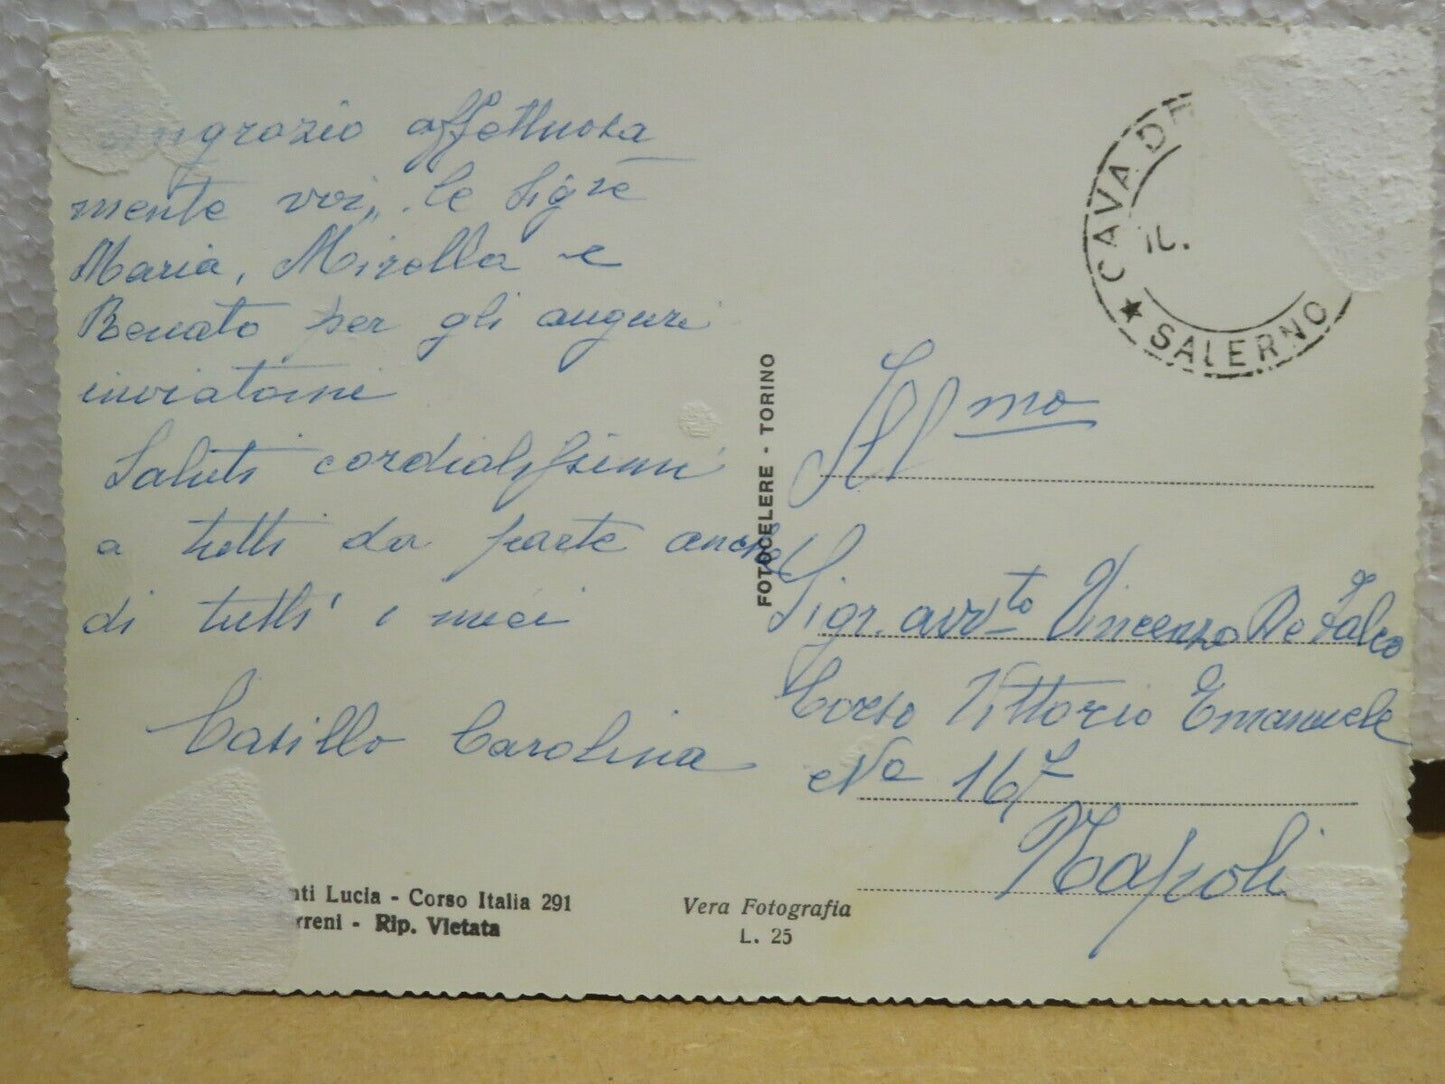 ringrazio affettuosa
mente voi, le Sig.re
Maria, Mirella e
Renato per gli auguri
inviatomi
Saluti cordialissimi
a tutti da parte anche
di tutti i miei
Casillo Carolina
nti Lucia - Corso Italia 291
rreni - Rip. Vietata
Vera Fotografia
L. 25
FOTOCELERE - TORINO
CAVA DE
10.
SALERNO
Ill mo
Sigr. avv.to Vincenzo De Falco
Corso Vittorio Emanuele
No 167
Napoli